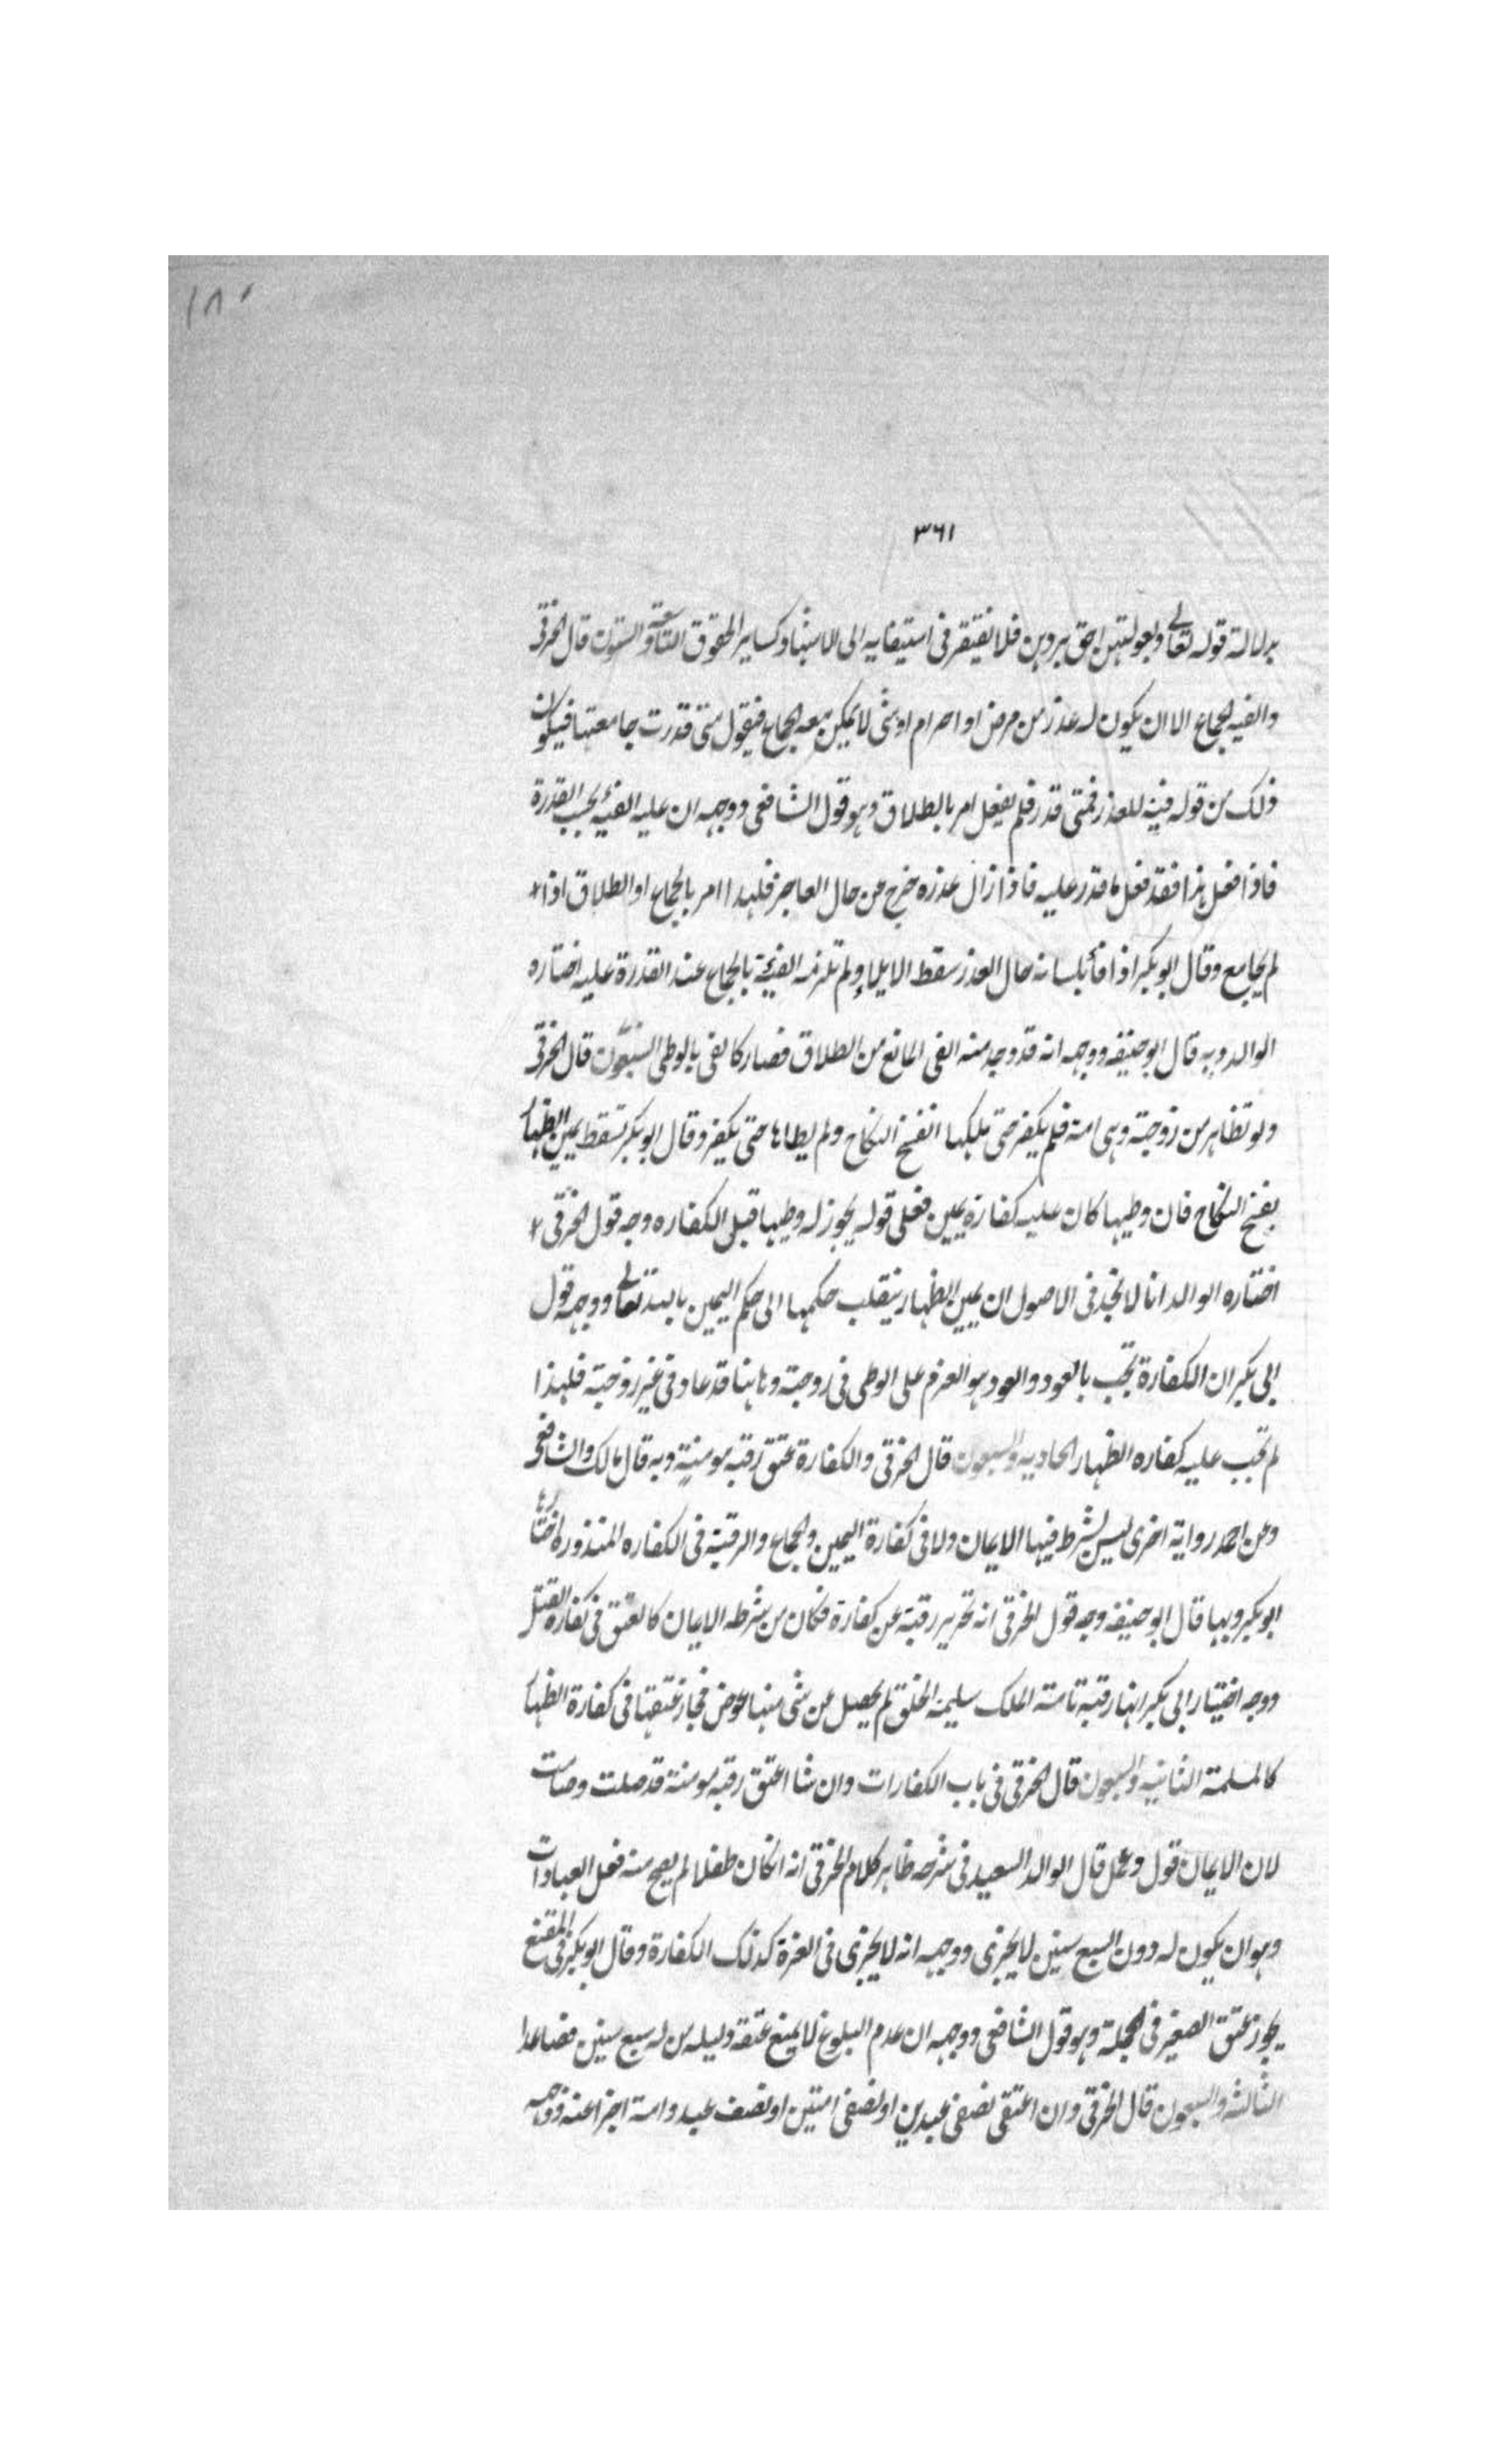 ١٨٠
٣٦١
بدلالة قوله تعالى وبعولتهن احق بردهن فلا يفتقر في استيفايه الى الاستيناء كساير الحقوق التاسعة والستون قال الخرقي
والفيه الجماع الا ان يكون له عذر من مرض او احرام او شى لا يمكن معه الجماع فيقول متى قدرت جامعتها فيكون
ذلك من قوله فيئة للعذر فمتى قدر فلم يفعل امر بالطلاق وهو قول الشافعي ووجهه ان عليه الفيه بحسب القدرة
فاذا فعل هذا فقد فعل ما قدر عليه فاذا زال عذره خرج من حال العاجز فلهذا امر بالجماع او الطلاق اذا
لم يجامع وقال ابو بكر اذا فأ بلسانه حال العذر سقط الايلاء ولم تلزمه الفيئة بالجماع عند القدرة عليه اختاره
الوالد وبه قال ابو حنيفه ووجهه انه قد وجد منه الفى المانع من الطلاق فصار كالفى بالوطى السبعون قال الخرقي
ولو تظاهر من زوجته وهى امة فلم يكفر حتى ملكها انفسخ النكاح ولم يطاها حتى يكفر وقال ابو بكر تسقط يمين الظهار
بفسخ النكاح فان وطيها كان عليه كفارة يمين فعلى قوله يجوز له وطيها قبل الكفاره وجه قول الخرقي
اختاره الوالد انا لا نجد في الاصول ان يمين الظهار ينقلب حكمها الى حكم اليمين بالله تعالى ووجه قول
ابى بكر ان الكفارة تجب بالعود والعود هو العزم على الوطى في زوجته وهاهنا قد عاد في غير زوجته فلهذا
لم تجب عليه كفاره الظهار الحاديه والسبعون قال الخرقي والكفارة عتق رقبة مومنة وبه قال مالك والشافعي
وعن احمد رواية اخرى ليس بشرط فيها الايمان ولا في كفارة اليمين والجماع والرقبة في الكفاره المنذوره اختارها
ابو بكر وبها قال ابو حنيفه وجه قول الخرقي انه تحرير رقبة عن كفارة فكان من شرطه الايمان كالعتق في كفارة القتل
ووجه اختيار ابى بكر انها رقبة تامة الملك سليمة الخلق لم يحصل عن شى منها عوض فجاز عتقها في كفارة الظهار
كالمسلمة الثانيه والسبعون قال الخرقي في باب الكفارات وان شا اعتق رقبة مومنة قد صلت وصامت
لان الايمان قول وعمل قال الوالد السعيد في شرحه ظاهر كلام الخرقي انه ان كان طفلا لم يصح منه فعل العبادات
وهو ان يكون له دون السبع سنين لا يجزى ووجهه انه لا يجزى في الغرة كذلك الكفارة وقال ابو بكر في المقنع
يجوز عتق الصغير في الجملة وهو قول الشافعي ووجهه ان عدم البلوغ لا يمنع عتقه دليله من له سبع سنين فصاعدا
الثالثه والسبعون قال الخرقي وان اعتق نصفى عبدين او نصفى امتين او نصف عبد وامة اجزا عنه ووجهه